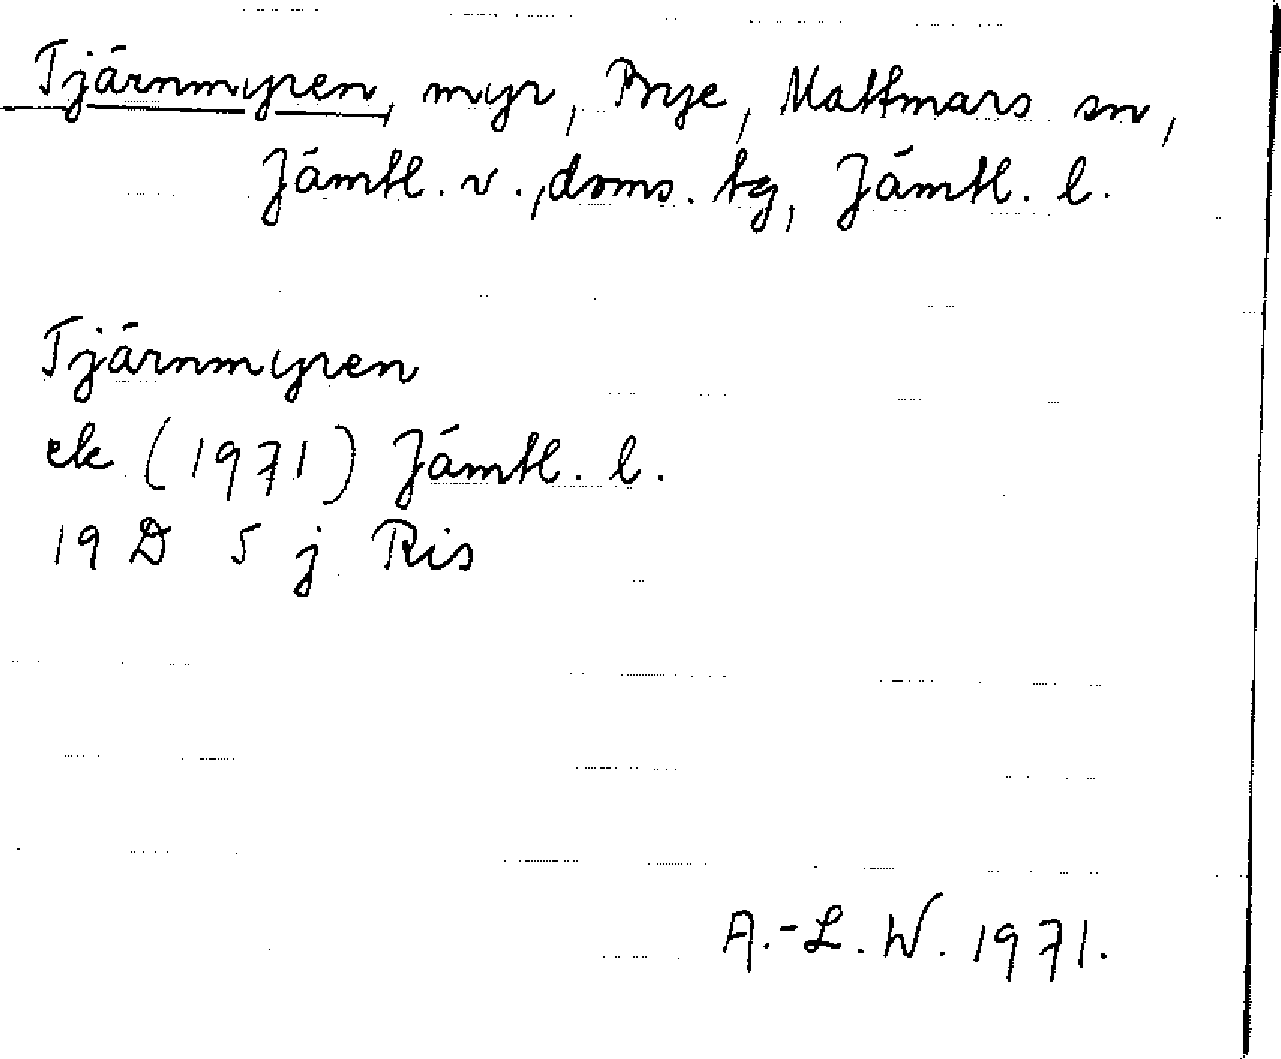 Tjärnmyren, myr, Mattmars sn,
Jämtl. v., doms. tg, Jämtl. l.
Tjärnmyren
ek (1971) Jämtl. l.
19 D 5 j Ris
A.-L. W. 1971.